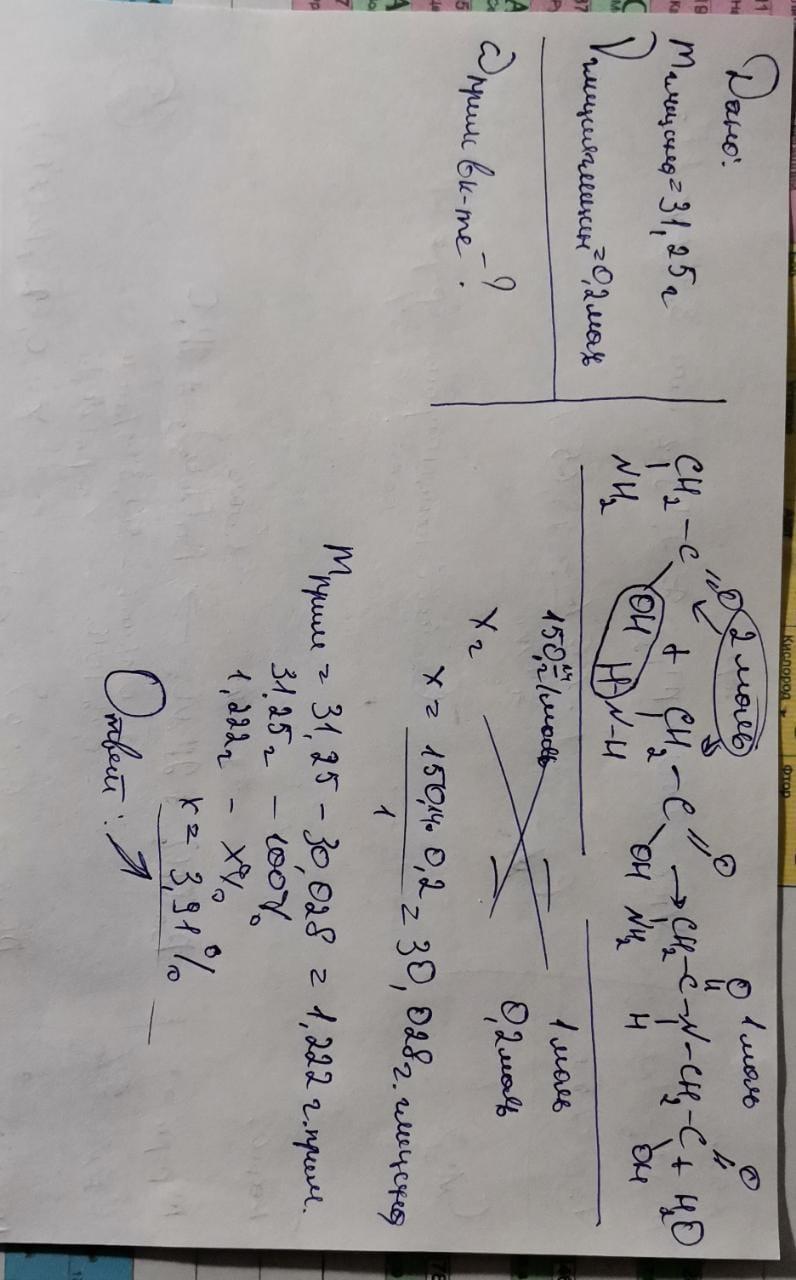 Дано:
m глицина = 31,25 г
ν глицилглицин = 0,2 моль
ω прим в к-те - ?
2 моль
1 моль
CH2 - C =O OH + CH2 - C =O OH → CH2 - C - N - CH2 - C =O OH + H2O
NH2 H-N-H NH2 O H
150,14 г/моль — 1 моль
x г — 0,2 моль
x = 150,14 · 0,2 / 1 = 30,028 г. глицина
m прим = 31,25 - 30,028 = 1,222 г. прим.
31,25 г - 100%
1,222 г - x%
x = 3,91 %
Ответ: ↗
Кислород
фтор